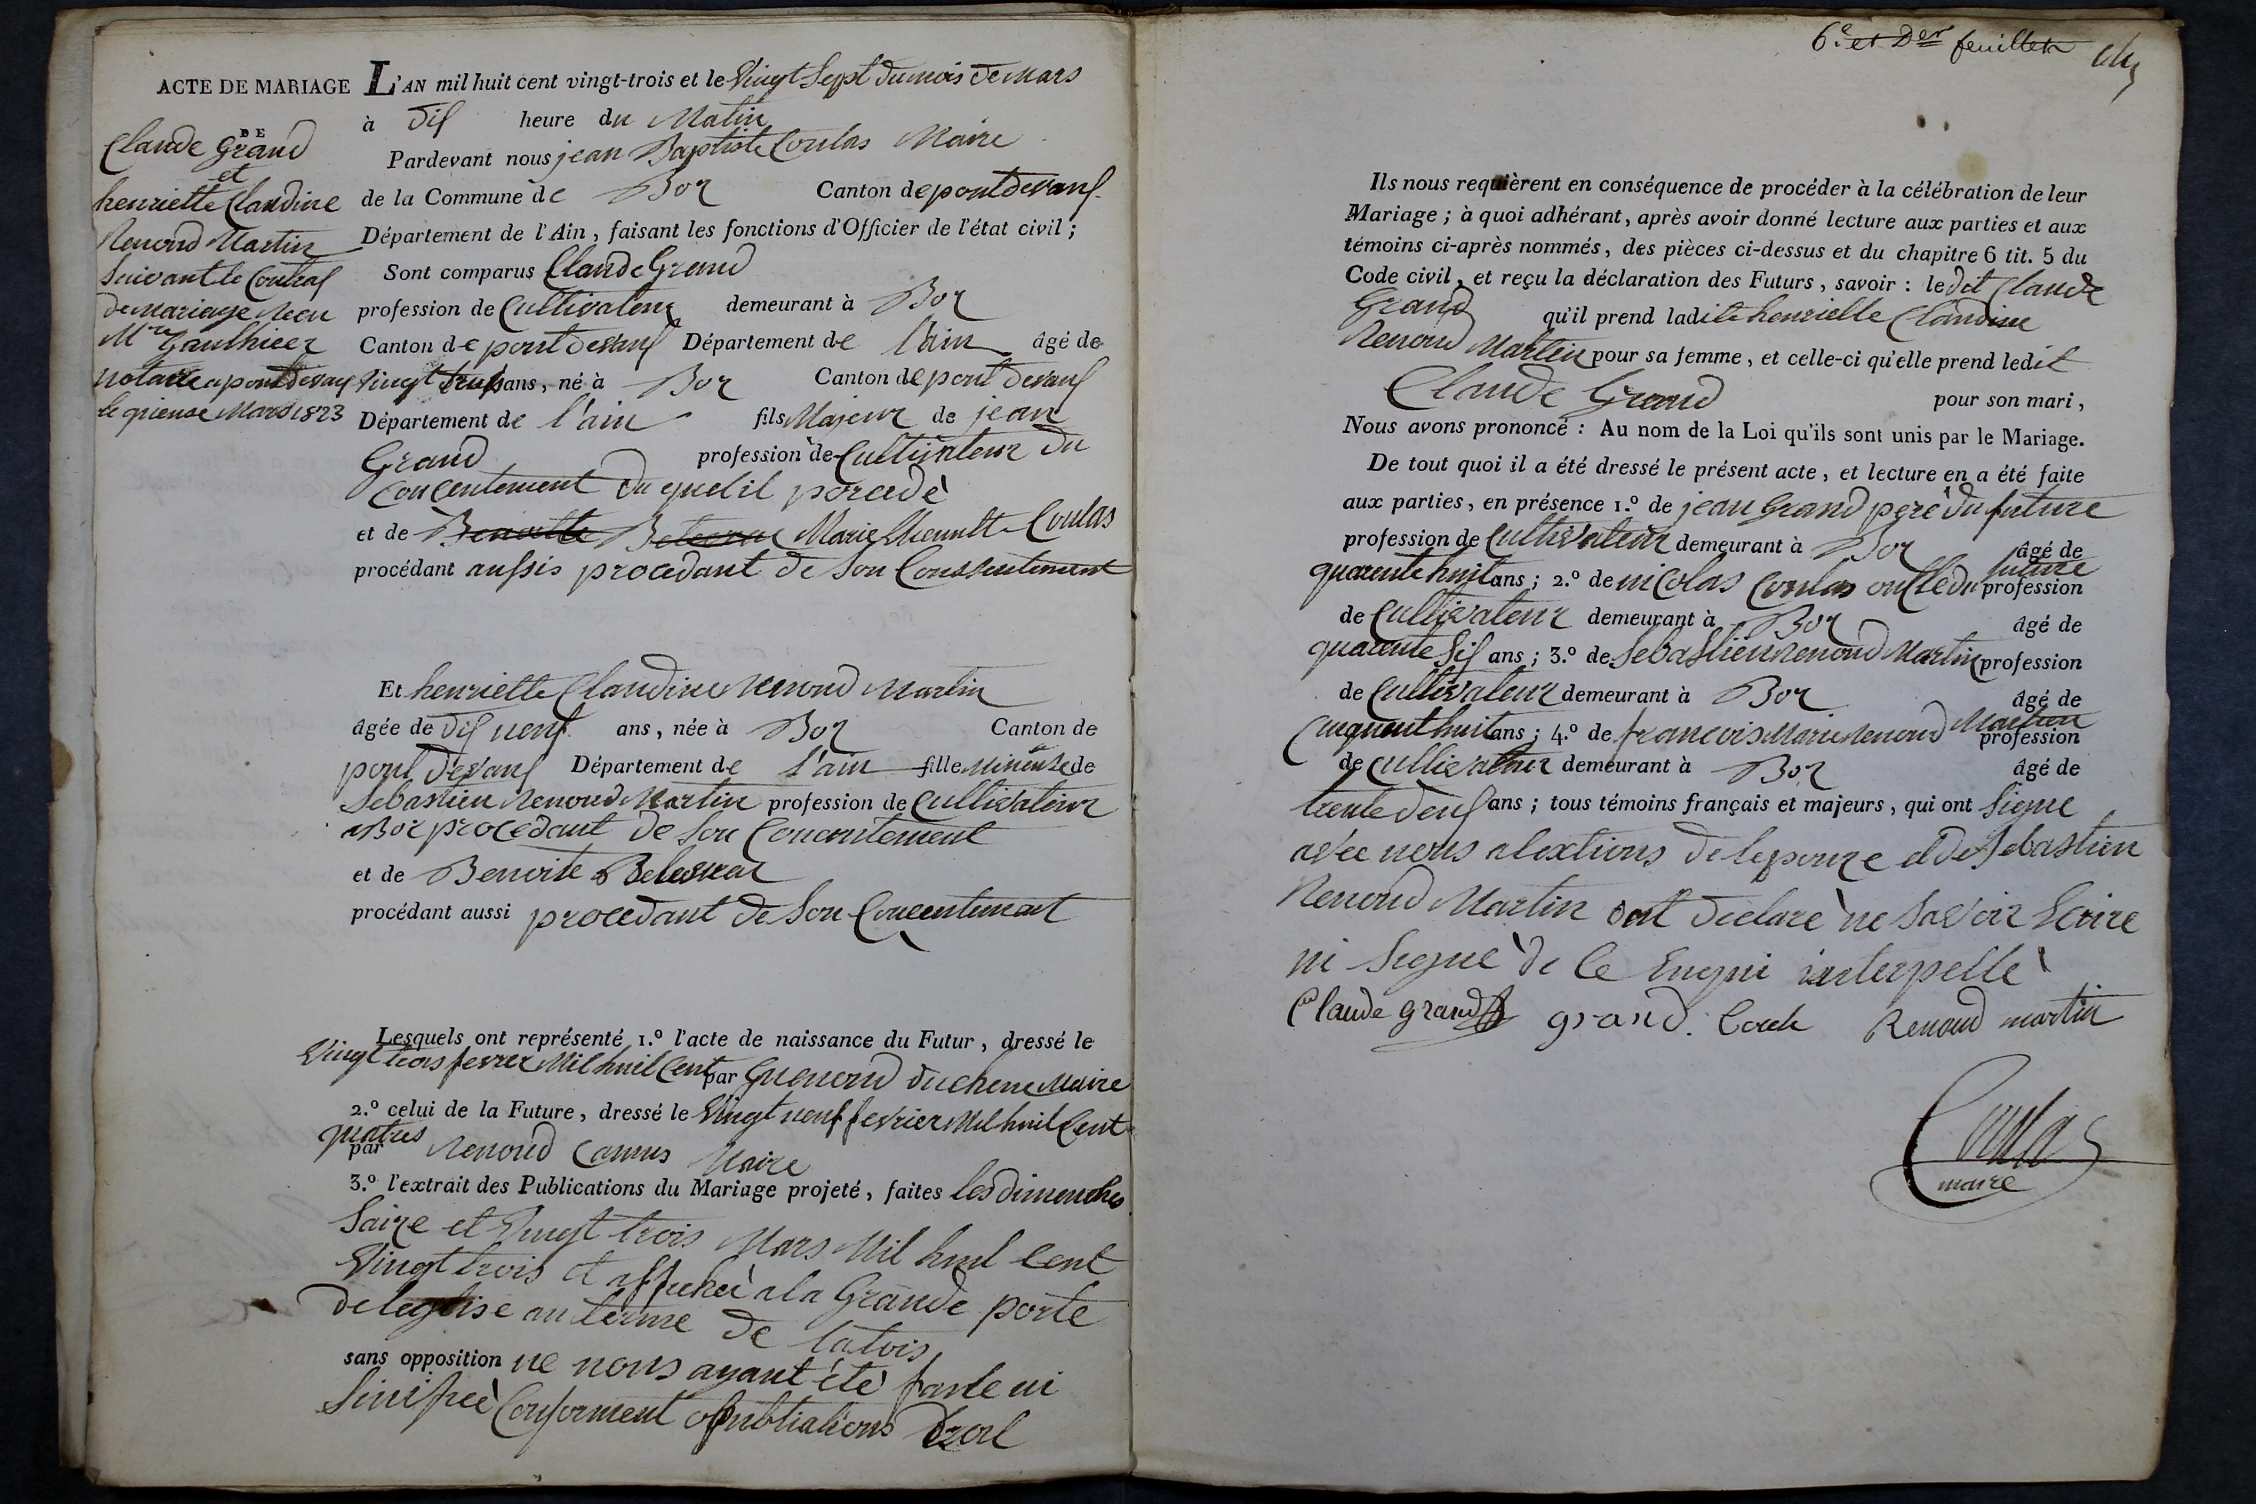 ACTE DE MARIAGE
DE
Claude Grand
et
henriette Claudine
Renoud Martin
Suivant le Contras
de mariage Recu
Mre Gaulthier
notaire a pontdevaus
le quiense Mars 1823
L'AN mil huit cent vingt-trois et le Vingt Sept du mois de mars
à dis heure du Matin
Pardevant nous jean Baptiste Coulas Maire
de la Commune de Boz Canton de pontdevaus
Département de l'Ain, faisant les fonctions d'Officier de l'état civil;
Sont comparus Claude Grand
profession de Cultivateur demeurant à Boz
Canton de pont devaus Département de l'ain âgé de
Vingt trois ans, né à Boz Canton de pont devaus
Département de l'ain fils Majeur de jean
Grand profession de Cultivateur du
Concentement du quel il procedè
et de Benoitte Marie Coulas
procédant aussis procedant de Son Conssentement
Et henriette Claudine Renoud Martin
âgée de dis neuf ans, née à Boz Canton de
pont devaus Département de l'ain fille mineure de
Sebastien Renoud Martin profession de Cultivateur
a Boz procedant de Son Concentement
et de Benoite
procédant aussi procedant de Son Concentement
Lesquels ont représenté 1.º l'acte de naissance du Futur, dressé le
Vingt trois fevrer Mil huil Cent par Guenoud duchene Maire
2.º celui de la Future, dressé le Vingt neuf fevrier Mil huil Cent
quatres
par Renoud Camus Maire
3.º l'extrait des Publications du Mariage projeté, faites les dimenches
Saize et Vingt trois Mars Mil huil Cent
Vingt trois et affichéè a la Grande porte
de leglise au terme de la lois
sans opposition ne nous ayant été faile ni
Sinifieè Conforment publiations
6.e et Der feuillet
Ils nous requièrent en conséquence de procéder à la célébration de leur
Mariage; à quoi adhérant, après avoir donné lecture aux parties et aux
témoins ci-après nommés, des pièces ci-dessus et du chapitre 6 tit. 5 du
Code civil, et reçu la déclaration des Futurs, savoir: ledit Claude
Grand qu'il prend ladite henrielle Claudine
Renoud Martin pour sa femme, et celle-ci qu'elle prend ledit
Claude Grand pour son mari,
Nous avons prononcé: Au nom de la Loi qu'ils sont unis par le Mariage.
De tout quoi il a été dressé le présent acte, et lecture en a été faite
aux parties, en présence 1.º de jean Grand pere du future
profession de Cultivateur demeurant à Boz âgé de
quarente huit ans; 2.º de nicolas Coulas oncle du future profession
de Cultivateur demeurant à Boz âgé de
quarente Sis ans; 3.º de Sebastien Renoud Martin profession
de Cultivateur demeurant à Boz âgé de
Cinquent huit ans; 4.º de francois Marie Renoud Martin profession
de Cultivateur demeurant à Boz âgé de
trente deus ans; tous témoins français et majeurs, qui ont Signe
avée nous alextions de lepouze et de Sebastien
Renoud Martin ont declarè ne Savoir Ecrire
ni Signe de Ce Enqui interpellè
Claude grand grand Renoud martin
Coulas
maire